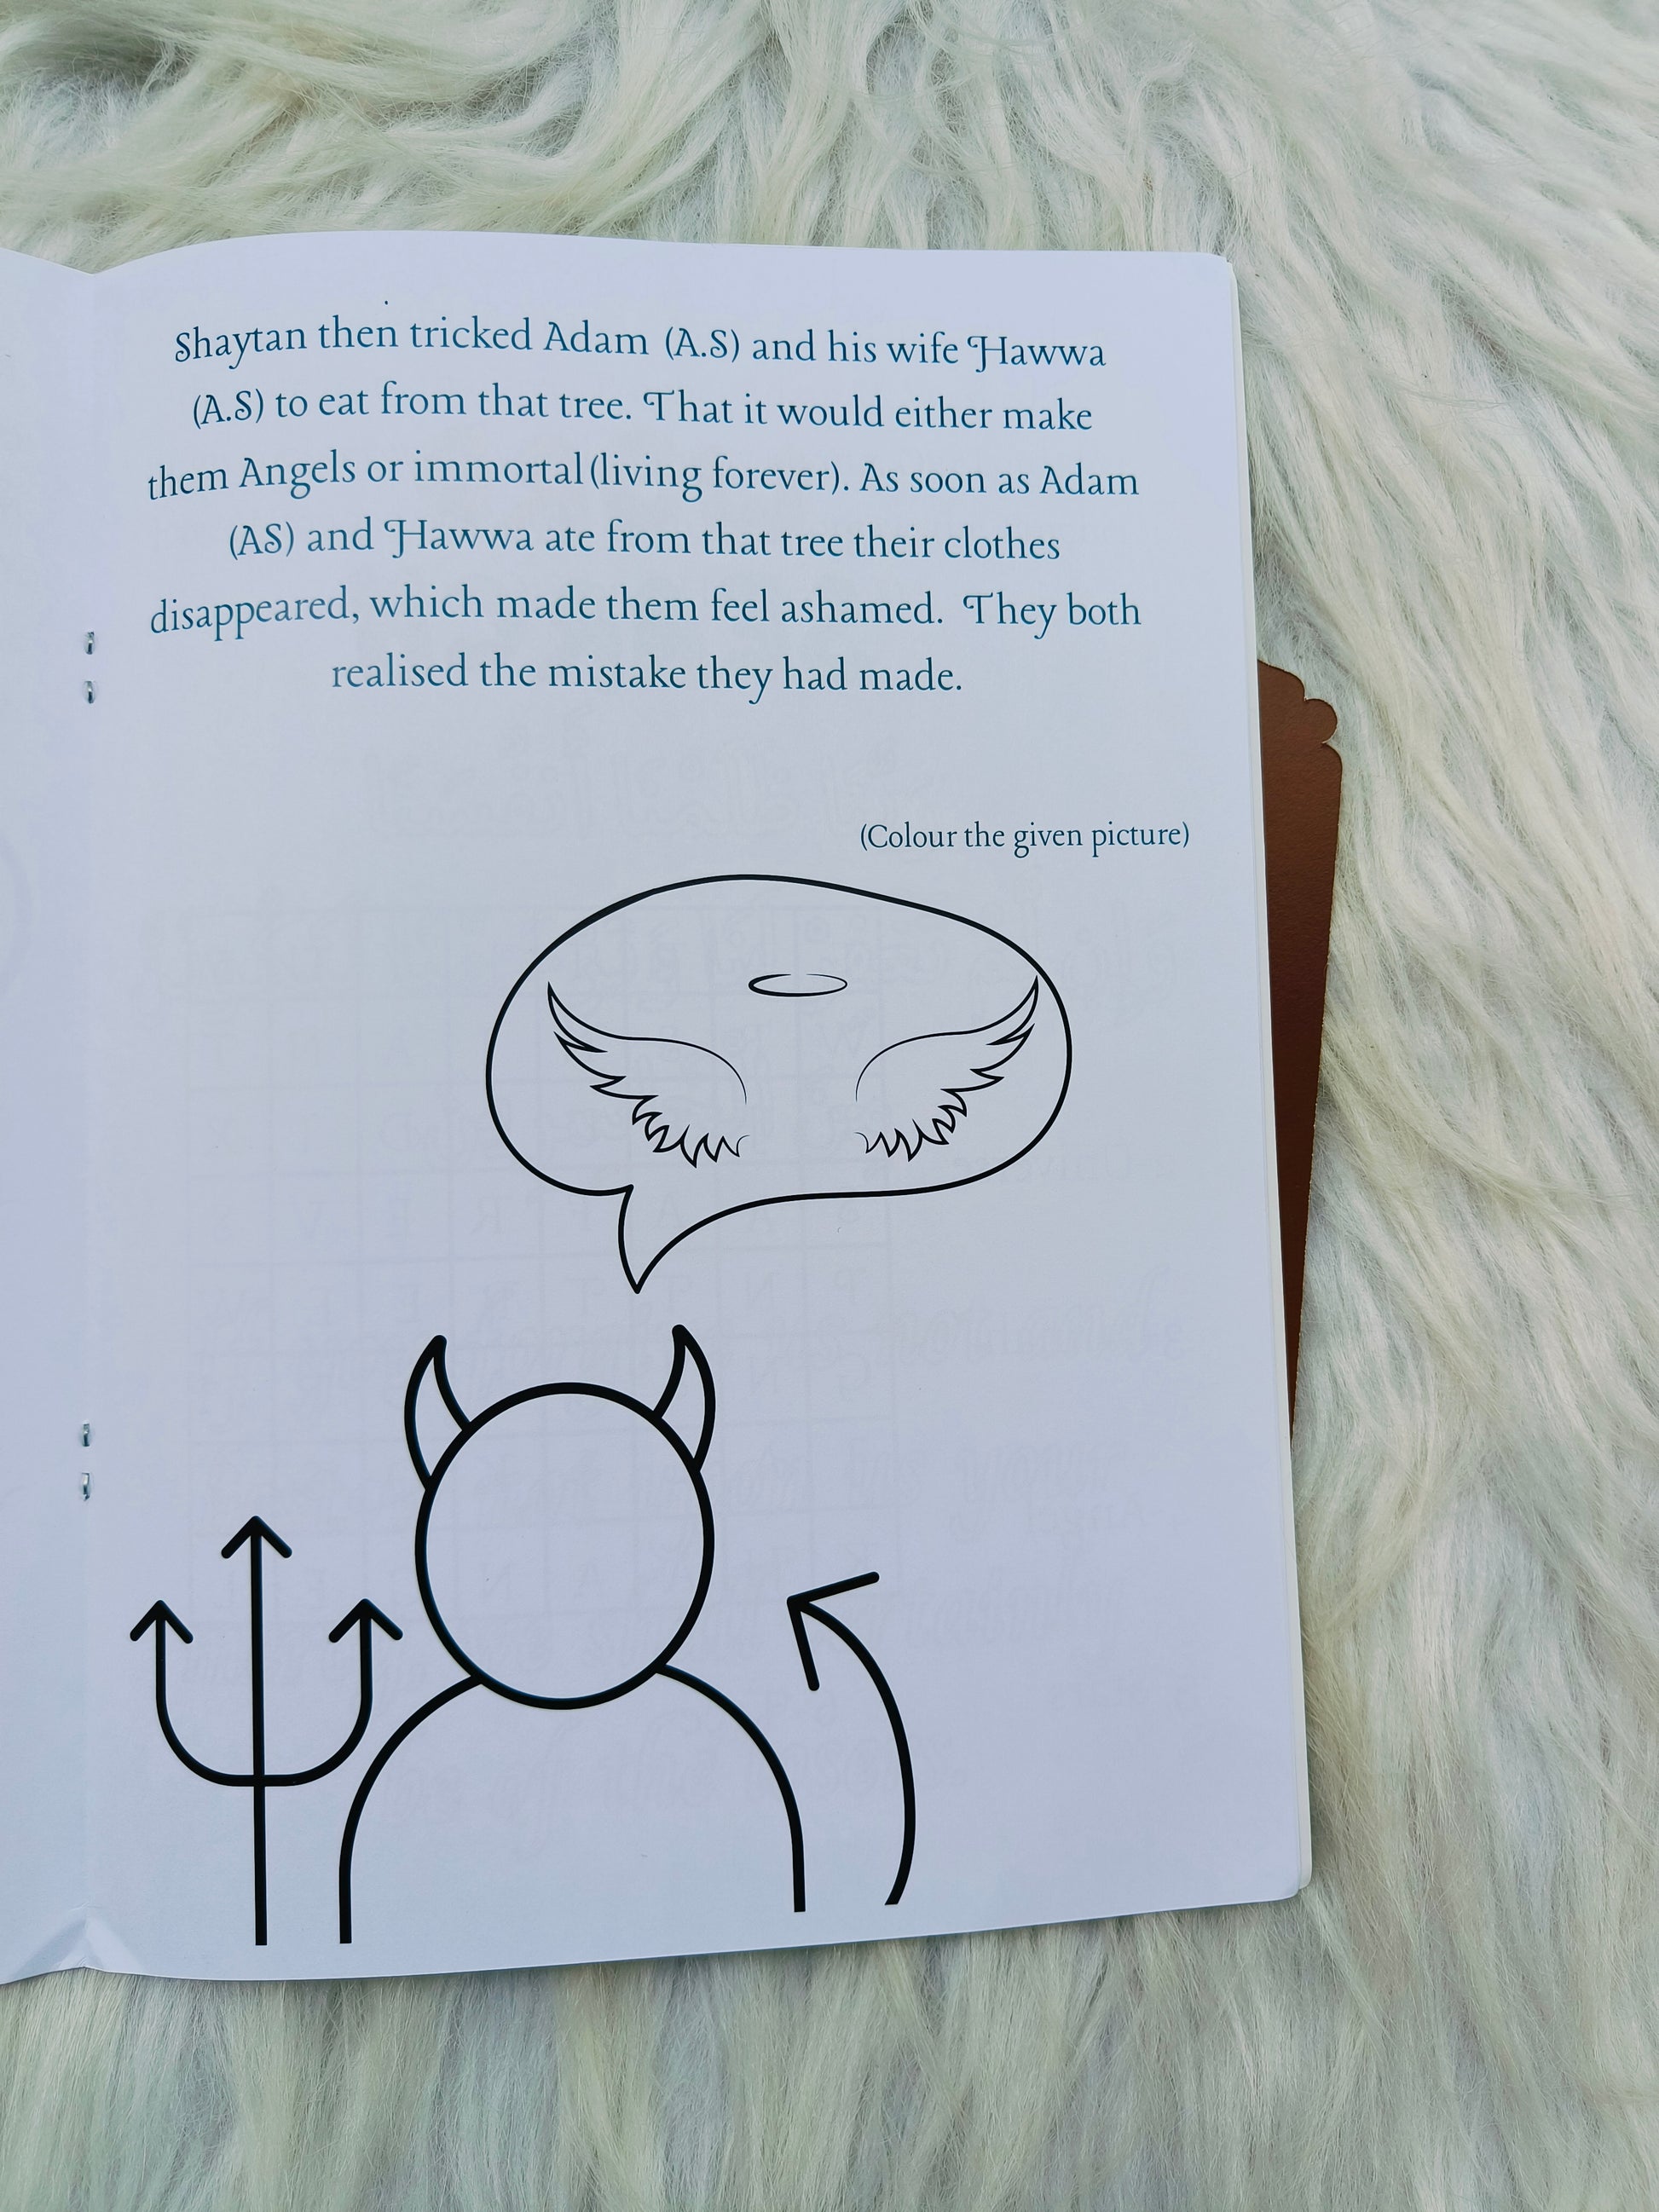 Shaytan then tricked Adam (A.S) and his wife Hawwa
(A.S) to eat from that tree. That it would either make
them Angels or immortal(living forever). As soon as Adam
(AS) and Hawwa ate from that tree their clothes
disappeared, which made them feel ashamed. They both
realised the mistake they had made.
(Colour the given picture)